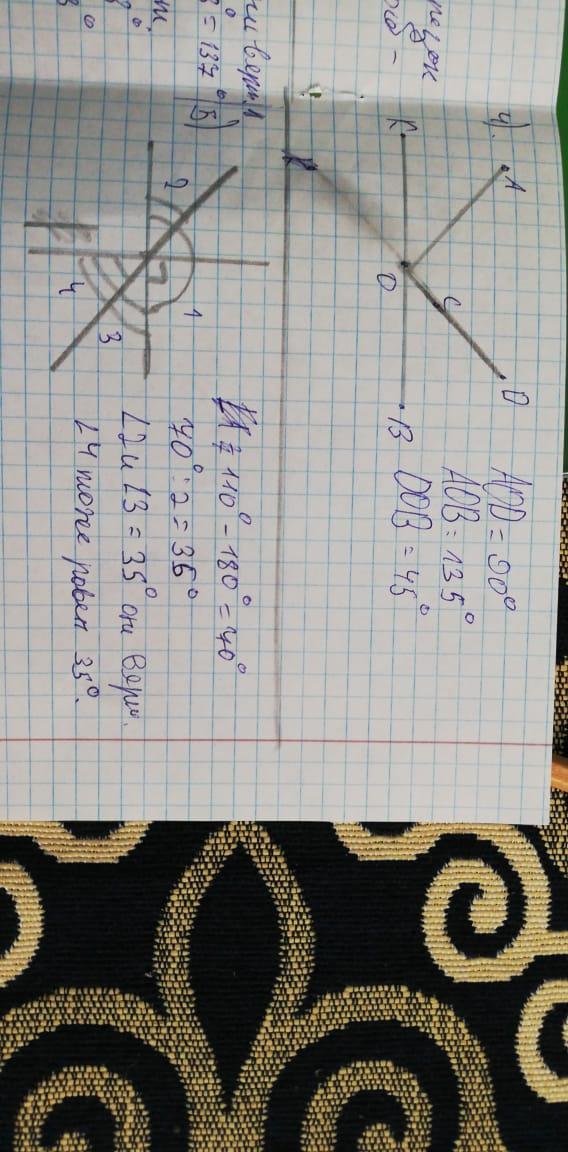 4)
A
D
K
O
C
B
K
AOD = 90°
AOB = 135°
DOB = 45°
= 137°
5)
2
1
4
3
110° - 180° = 70°
70° : 2 = 35°
∠2 и ∠3 = 35° они верт.
∠4 тоже равен 35°.